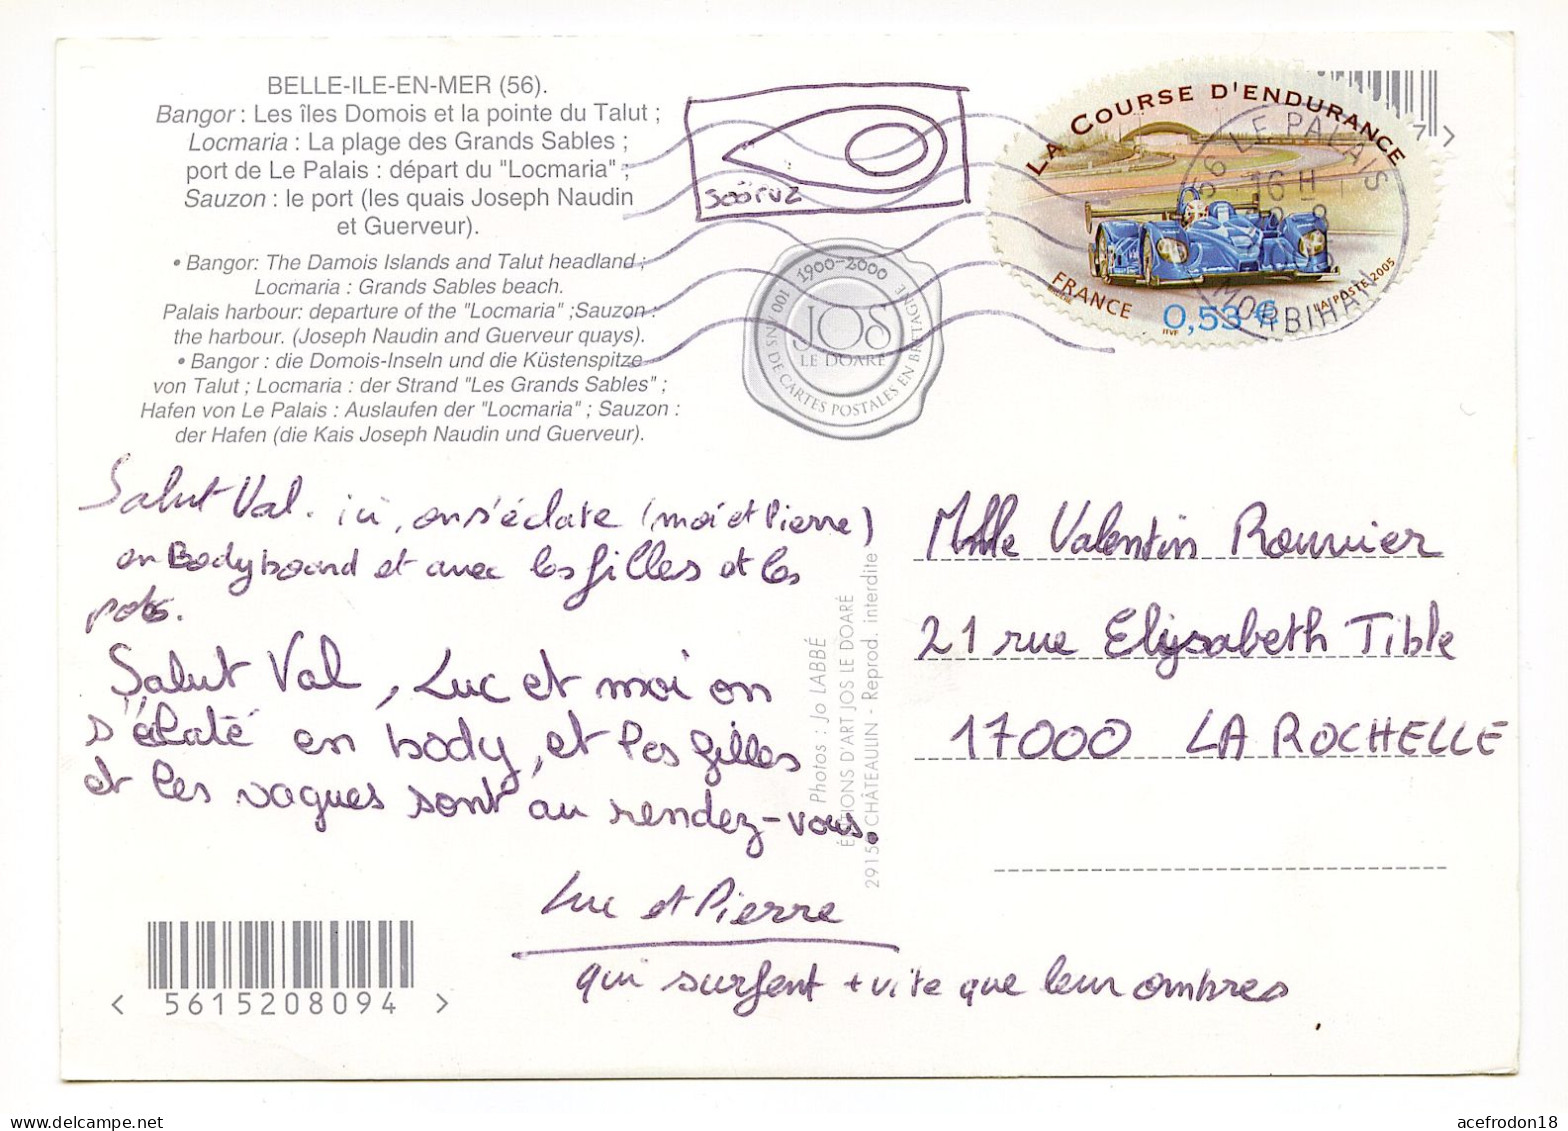 BELLE-ILE-EN-MER (56).
Bangor : Les îles Domois et la pointe du Talut ;
Locmaria : La plage des Grands Sables ;
port de Le Palais : départ du "Locmaria" ;
Sauzon : le port (les quais Joseph Naudin
et Guerveur).
• Bangor: The Damois Islands and Talut headland ;
Locmaria : Grands Sables beach.
Palais harbour: departure of the "Locmaria" ;Sauzon :
the harbour. (Joseph Naudin and Guerveur quays).
• Bangor : die Domois-Inseln und die Küstenspitze
von Talut ; Locmaria : der Strand "Les Grands Sables" ;
Hafen von Le Palais : Auslaufen der "Locmaria" ; Sauzon :
der Hafen (die Kais Joseph Naudin und Guerveur).
1900-2000
JOS
LE DOARÉ
100 ANS DE CARTES POSTALES EN BRETAGNE
LA COURSE D'ENDURANCE
FRANCE
0,53 €
ITVF
LA POSTE 2005
56 LE PALAIS
16 H
MORBIHAN
7 >
Salut Val. ici, on s'éclate (moi et Pierre)
en Bodyboard et avec les filles et les
pots.
Salut Val, Luc et moi on
s'éclaté en body, et les filles
et les vagues sont au rendez-vous.
Luc et Pierre
qui surfent + vite que leur ombres
Photos : Jo LABBÉ
ÉDITIONS D'ART JOS LE DOARÉ
CHÂTEAULIN - Reprod. interdite
Mlle Valentin Rouvier
21 rue Elysabeth Tible
17000 LA ROCHELLE
< 5615208094 >
acefrodon18